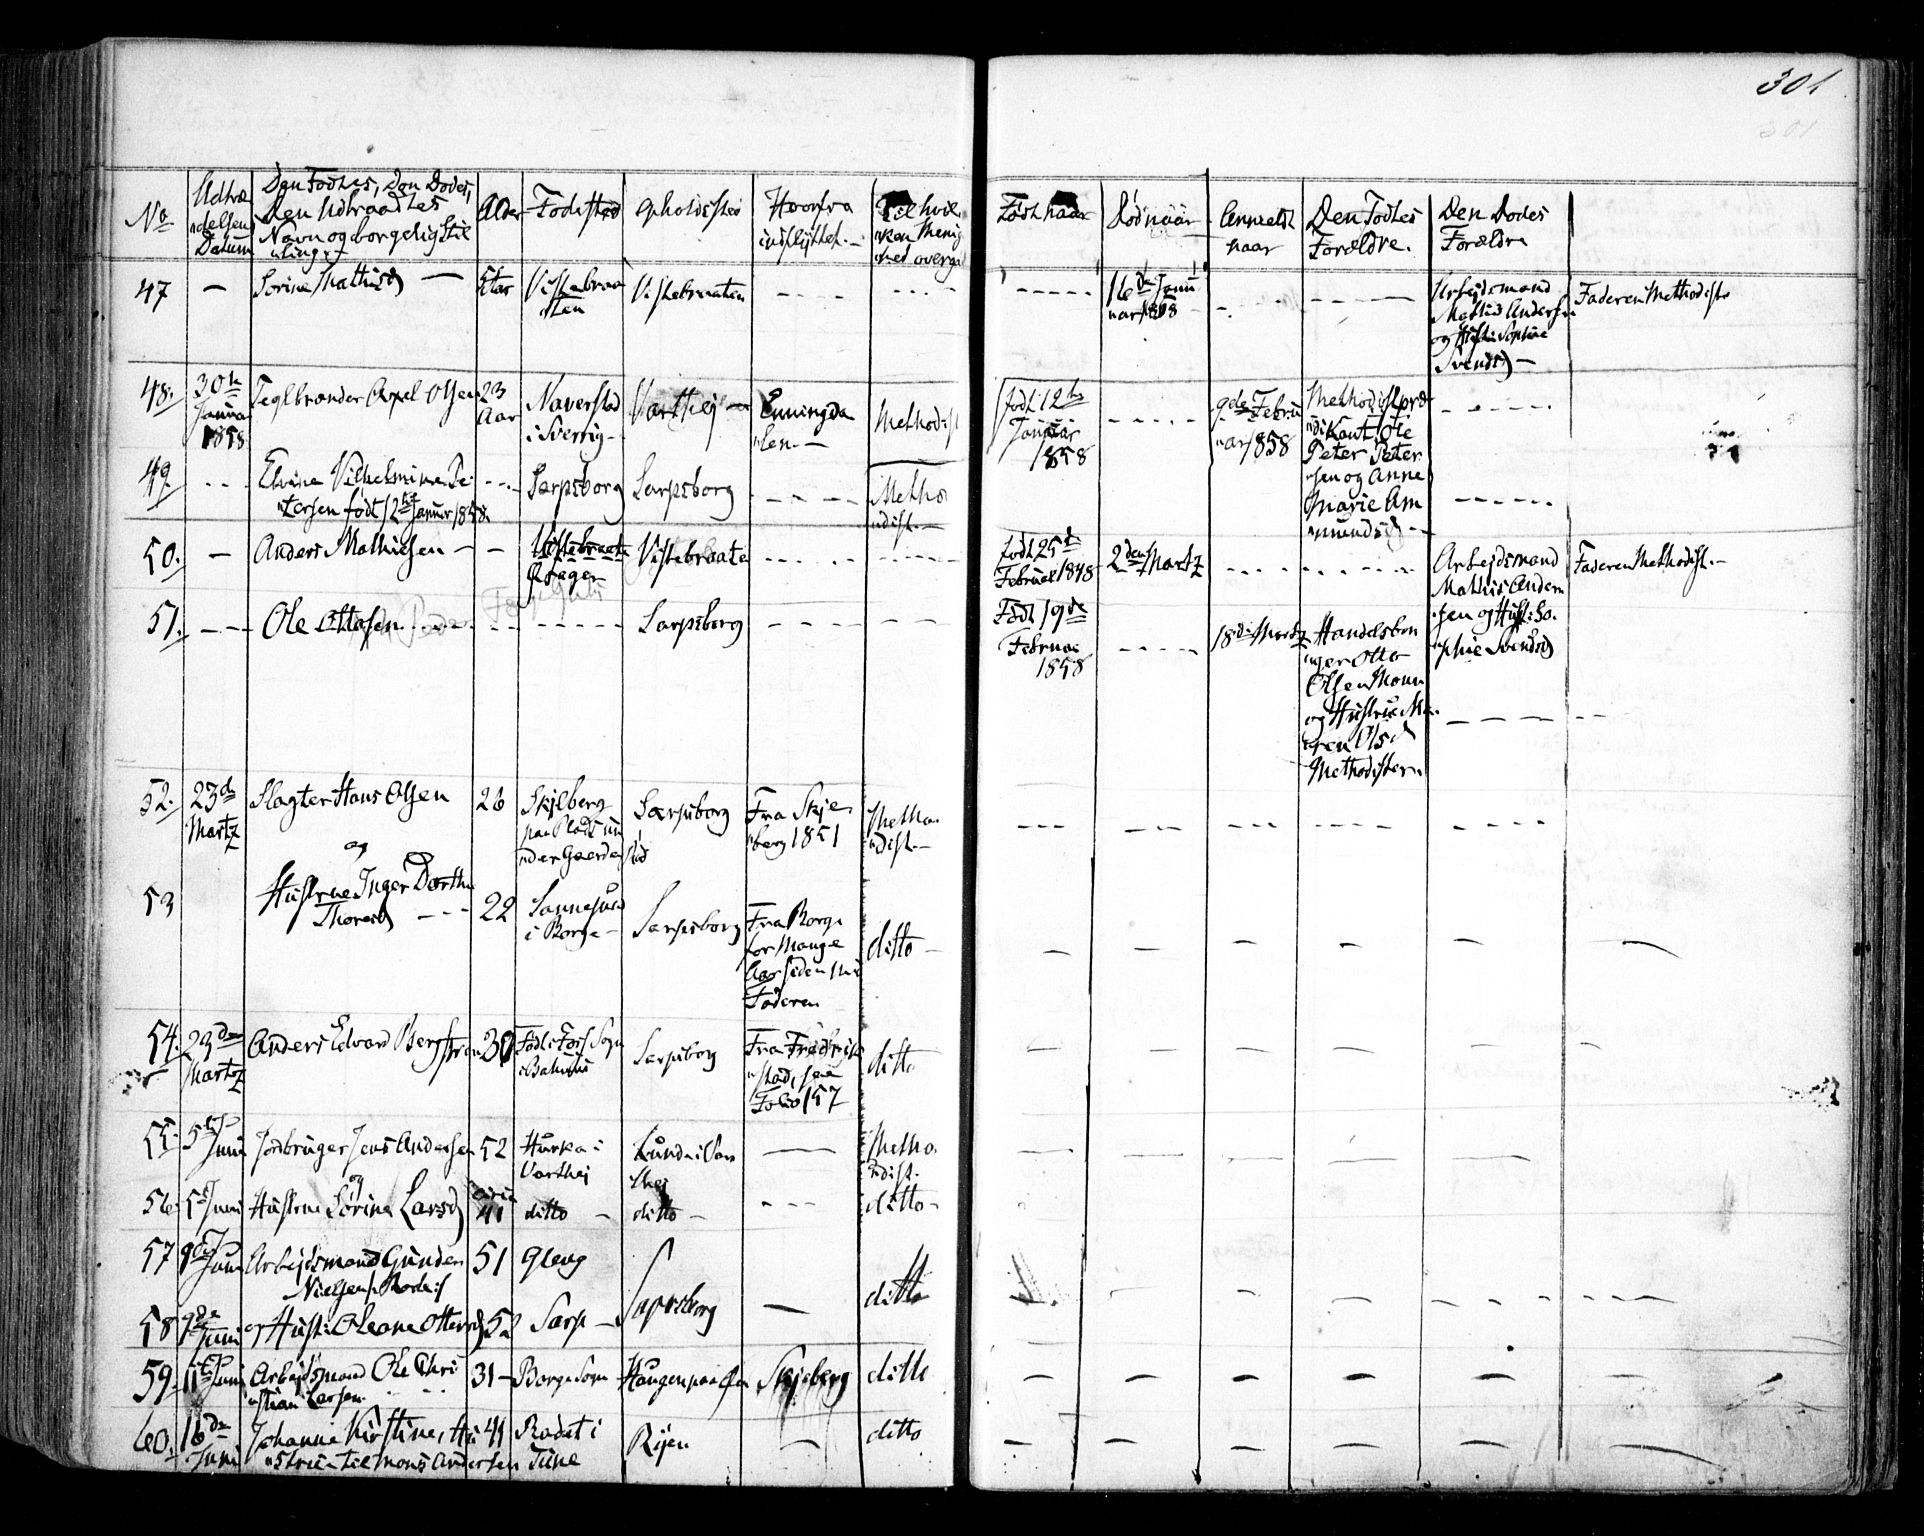 301
No
Udtræ
delsens
Datum
Den Fødtes, Den Dødes,
Den Udtraadtes
Navn og borgerlig Stil
ling
Alder
Fødested
Opholdssted
Hvorfra
indflyttet.
Til hvil
ken Menig
hed overga
Født naar
Død naar
Anmeldt
naar
Den Fødtes
Forældre.
Den Dødes
Forældre
47 — Sorine Mathisd — Vistebraa
ten
Vistebraaten
16de Janu
ar 1858
Arbejdsmand
Mathis Anders
og Hust: Sophie
Svendsd —
Faderen Methodist
48. 30te
Januar
1858
Teglbrænder Axel Olsen
23
Aar
Naverstad
i Sverrig
Varthej
Enningda
len —
Methodist
født 12te
Januar
1858
9de Febru
ar 1858
Methodistpræ
dikant Ole
Peter Peter
sen og Anne
Marie Am
mundsd
49 Elvine Vilhelmine Pe
tersen født 12te Januar 1858.
Sarpsborg
Sarpsborg
Metho
dist.
50. — Anders Mathiesen — —
Vistebraate
Vistebraate
født 25de
Februar 1848
2den Martz
Arbejdsmand
Mathis Ander
sen og Hust: So
phie Svendsd
Faderen Methodist. —
51. Ole Ottosen
Sarpsborg
Født 19de
Februar
1858
18de Martz
Handelsbor
ger Otto
Olsen Moum
og Hustrue Ma
ren Olsd
Methodister
52. 23de
Martz
Slagter Hans Olsen
26
Skjeberg
paa Plads un
der Gaarden
Sarpsborg
Fra Skje
berg 1851
Metho
dist. —
og
53
Hustrue Inger Dorthe
Thoresd
22
Sannesund
i Borge —
Sarpsborg
Fra Borge
for Mange
Aar siden
Faderen
ditto —
54. 23de
Martz
Anders Edvard Bergstrøm
30
Født i Foss Sogn
Bahuus
Sarpsborg
Fra Fredrik
stad, see
Folio 157
ditto
55. 5te
Juni
Jordbruger Jens Andersen
52
Hurka i
Varthej
Lunde i Var
thej
Metho
dist.
56. 5te Juni
og
Hustrue Sørine Larsd
circa
41
ditto —
ditto —
ditto —
57 9de
Juni
Arbejdsmand Gunder
Nielsen
51
Gleng
Sarpsborg
ditto
58 9de
Juni
og Hust: Oleane Ottersd
52
Sarp —
59. 11te Juni
Arbejdsmand Ole Chri
stian Larsen
31 —
Borge Sogn
Haugen paa
Skjeberg
ditto
60. 16de
Juni
Johanne Kirstine, Hu
strue til Mons Andersen
41
Rodet i
Tune
Rÿen
ditto